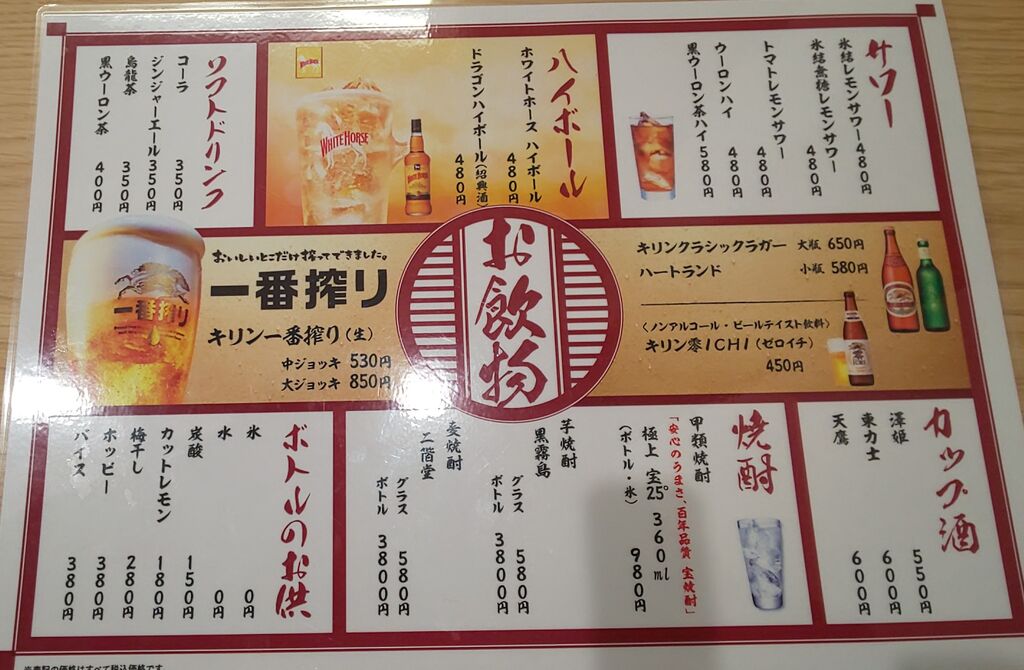 サワー
氷結レモンサワー480円
氷結無糖レモンサワー 480円
トマトレモンサワー 480円
ウーロンハイ 480円
黒ウーロン茶ハイ580円
ハイボール
ホワイトホース ハイボール 480円
ドラゴンハイボール(紹興酒) 480円
WHITE HORSE
ソフトドリンク
コーラ 350円
ジンジャーエール350円
烏龍茶 350円
黒ウーロン茶 400円
お飲物
おいしいとこだけ搾ってできました。
一番搾り
キリン一番搾り(生)
中ジョッキ 530円
大ジョッキ 850円
一番搾り
キリンクラシックラガー 大瓶 650円
ハートランド 小瓶 580円
〈ノンアルコール・ビールテイスト飲料〉
キリン零ICHI(ゼロイチ)
450円
カップ酒
澤姫 550円
東力士 600円
天鷹 600円
焼酎
「安心のうまさ、百年品質 宝焼酎」
甲類焼酎
極上 宝25° 360ml
(ボトル・氷) 980円
芋焼酎
黒霧島
グラス 580円
ボトル 3800円
麦焼酎
二階堂
グラス 580円
ボトル 3800円
ボトルのお供
氷 0円
水 0円
炭酸 150円
カットレモン 180円
梅干し 280円
ホッピー 380円
バイス 380円
※表記の価格はすべて税込価格です